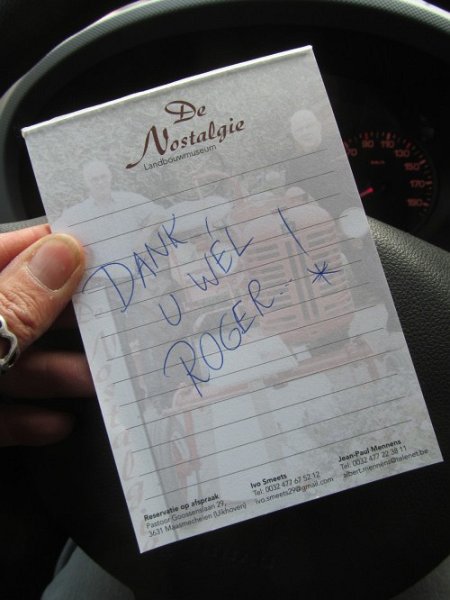 De
Nostalgie
Landbouwmuseum
DANK
U WEL !
ROGER... *
Reservatie op afspraak
Pastoor Goossenslaan 29,
3631 Maasmechelen (Uikhoven)
Ivo Smeets
Tel: 0032 477 67 52 12
ivo.smeets29@gmail.com
Jean-Paul Mennens
Tel: 0032 477 22 38 11
albert.mennens@telenet.be
70
90
110
130
150
170
190